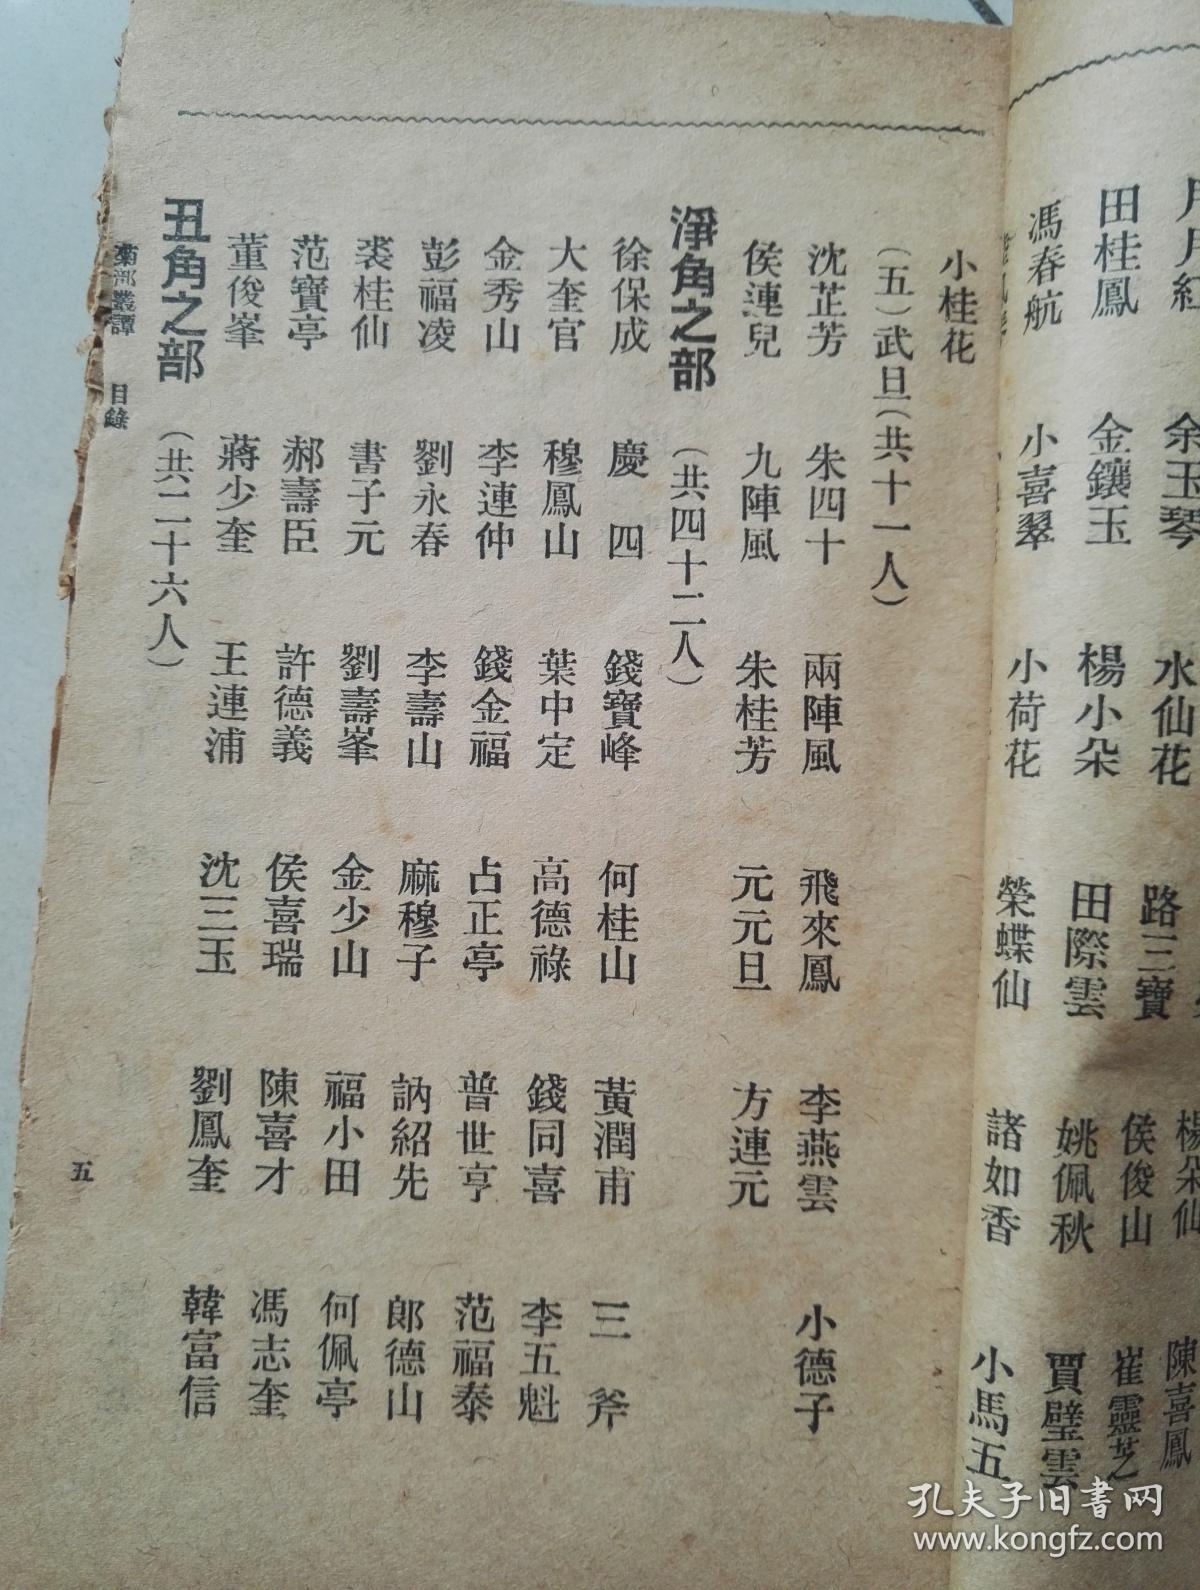 田桂鳳 金鑲玉 楊小朵 田際雲 姚佩秋 賈璧雲
馮春航 小喜翠 小荷花 榮蝶仙 諸如香 小馬五
余玉琴 水仙花 路三寶 侯俊山 崔靈芝
楊朵仙 陳喜鳳
小桂花
(五)武旦(共十一人)
沈芷芳 朱四十 兩陣風 飛來鳳 李燕雲 小德子
侯連兒 九陣風 朱桂芳 元元旦 方連元
淨角之部 (共四十二人)
徐保成 慶四 錢寶峰 何桂山 黃潤甫 三斧
大奎官 穆鳳山 葉中定 高德祿 錢同喜 李五魁
金秀山 李連仲 錢金福 占正亭 普世亨 范福泰
彭福凌 劉永春 李壽山 麻穆子 訥紹先 郎德山
裘桂仙 書子元 劉壽峯 金少山 福小田 何佩亭
范寶亭 郝壽臣 許德義 侯喜瑞 陳喜才 馮志奎
董俊峯 蔣少奎 王連浦 沈三玉 劉鳳奎 韓富信
丑角之部 (共二十六人)
菊部叢譚 目錄
五
孔夫子旧书网
www.kongfz.com